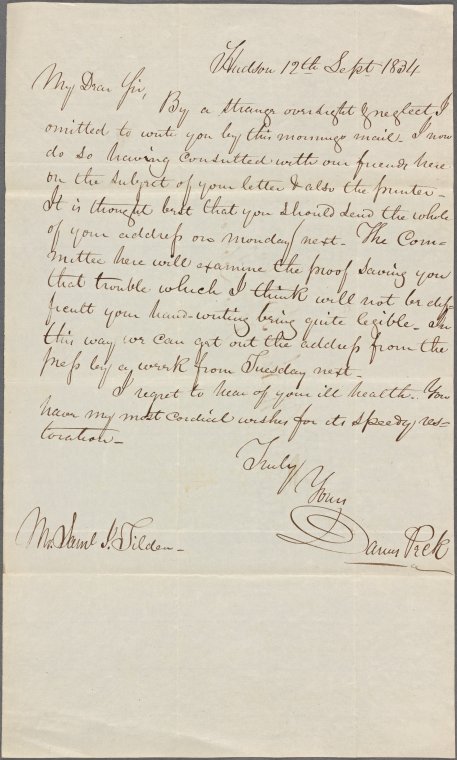 Hudson 12th Sept 1834
My Dear Sir,
By a strange oversight & neglect I
omitted to write you by this mornings mail - I now
do so having consulted with our friends here
on the subject of your letter & also the printer -
It is thought best that you should send the whole
of your address on monday next - The Com-
mittee here will examine the proof saving you
that trouble which I think will not be dif-
ficult your hand-writing being quite legible - In
this way we can get out the address from the
press by a week from Tuesday next -
I regret to hear of your ill health - You
have my most cordial wishes for its speedy res-
toration -
Truly
Yours
Darius Peck
Mr. Saml J. Tilden -